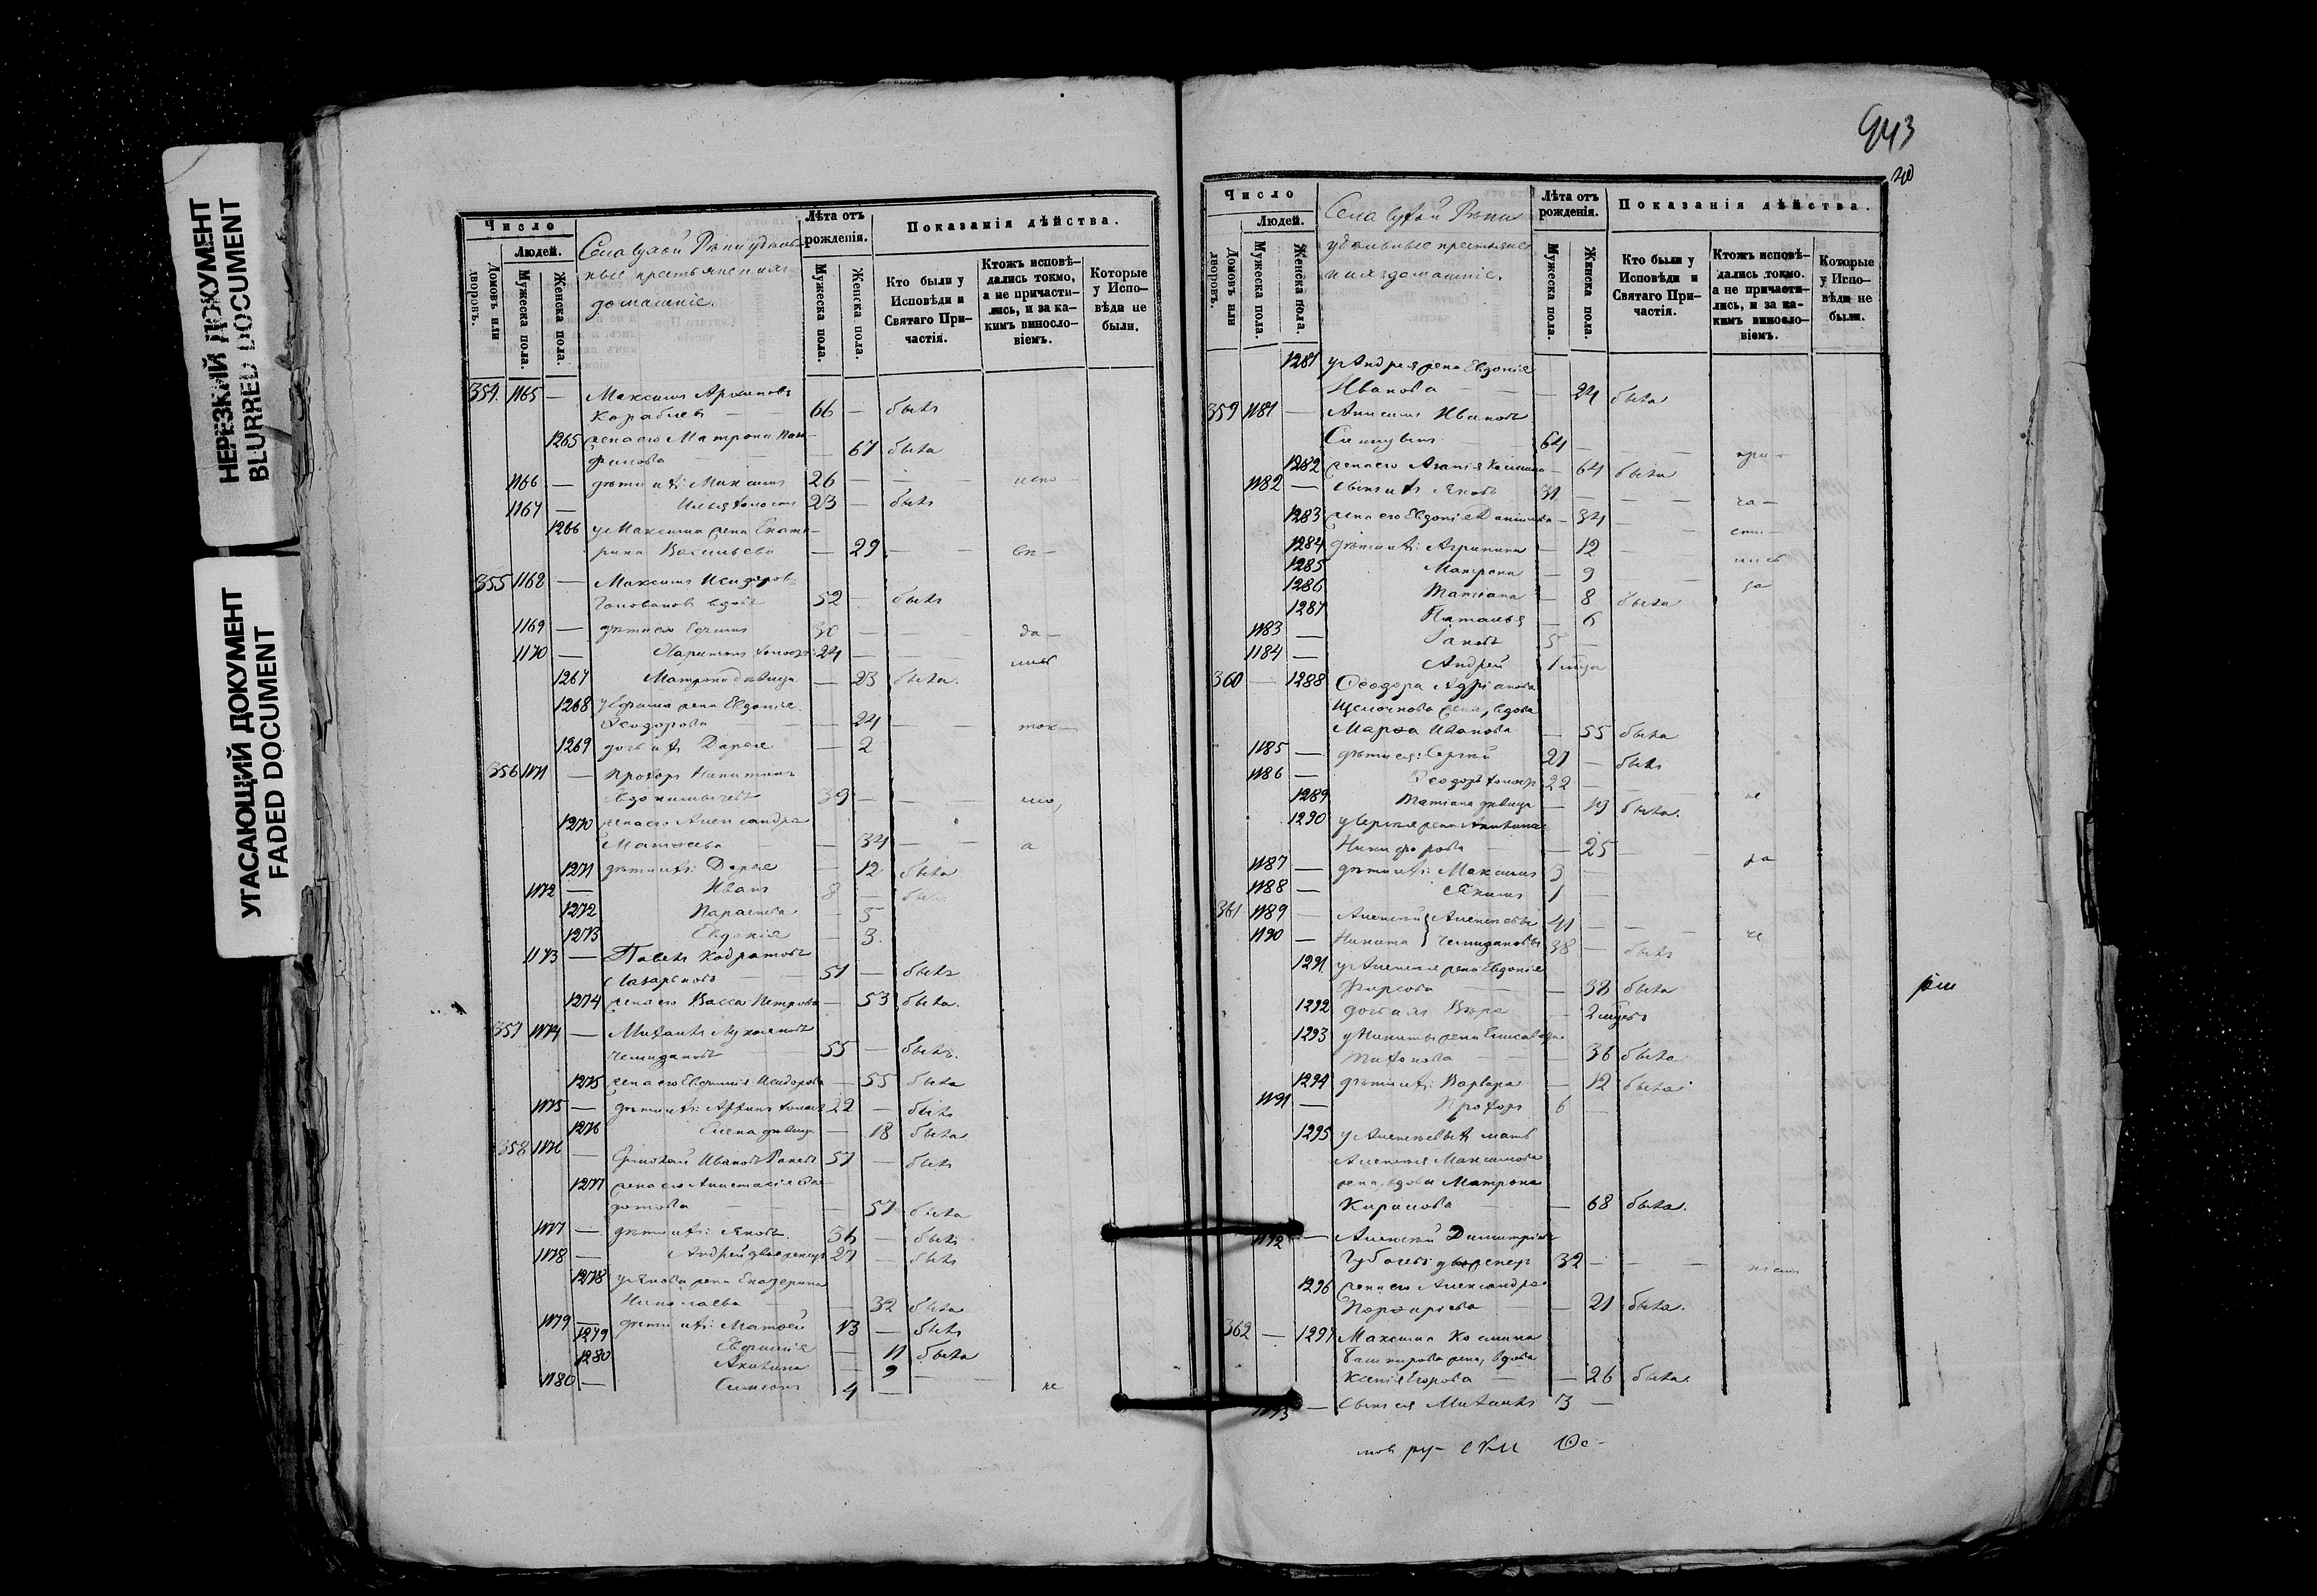 НЕРЕЗКИЙ ДОКУМЕНТ
BLURRED DOCUMENT
УГАСАЮЩИЙ ДОКУМЕНТ
FADED DOCUMENT
Число
Людей.
Домовъ или дворовъ.
Мужеска пола.
Женска пола.
Села Сухой Рѣпи удѣль-
ные крестьяне и ихъ
домашніе.
Лѣта отъ рожденія.
Мужеска пола.
Женска пола.
Показанія дѣйства.
Кто были у Исповѣди и Святаго При-частія.
Ктожъ исповѣ-дались токмо, а не причасти-лись, и за ка-кимъ винослo-віемъ.
Которые у Испо-вѣди не были.
354. 1165 — Максимъ Архиповъ
Кораблевъ — 66 — былъ
1265 жена его Матрона Пам-
филова — 67 была
1166 — дѣти ихъ: Максимъ 26 — — испо-
1167 — Илья холостъ 23 — былъ
1266 у Максима жена Екате-
рина Васильева — 29 —
355 1168 — Максимъ Исидоровъ
Головановъ вдовъ 52 — былъ
1169 — дѣти его Ефимъ 30 — — да-
1170 — Харитонъ холостъ 24 — — лись
1267 Матрона дѣвица — 23 была.
1268 у Ефима жена Евдокія
Ѳеодорова — 24 — — ток-
1269 дочь ихъ Дарья — 2
356 1171 — Прохоръ Никитинъ
Евдокимычевъ 39 — — мо,
1270 жена его Александра
Матѳеева — 34 — — а
1271 дѣти ихъ: Дарья — 12 была
1172 — Иванъ 8 — былъ
1272 Параскева — 5
1273 Евдокія — 3.
1173 — Павелъ Кодратовъ
Лазарьковъ 51 — былъ
1274 жена его Васса Петрова — 53 была.
357 1174 — Михаилъ Лукояновъ
Чемидановъ 55 — былъ.
1275 жена его Евфимія Исидорова — 55 была
1175 — дѣти ихъ: Архипъ холостъ 22 — былъ
1276 Елена дѣвица — 18 была
358 1176 — Ермолай Ивановъ 57 — былъ
1277 жена его Анастасія Ѳе-
дотова — 57 была
1177 — дѣти ихъ: Яковъ. 36 — былъ
1178 — Андрей двоеженецъ 27 — былъ
1278 у Якова жена Екатерина
Николаева — 32 была
1179 — дѣти ихъ: Матѳей 13 — былъ
1279 Евфимія — 11 была
1280 Акилина — 9 —
1180 — Симеонъ 4 — не
943
20
Число
Людей.
Домовъ или дворовъ.
Мужеска пола.
Женска пола.
Села Сухой Рѣпи
удѣльные крестьяне
и ихъ домашніе.
Лѣта отъ рожденія.
Мужеска пола.
Женска пола.
Показанія дѣйства.
Кто были у Исповѣди и Святаго При-частія.
Ктожъ исповѣ-дались токмо. а не причасти-лись, и за ка-кимъ винослo-віемъ.
Которые у Испо-вѣди не были.
1281 у Андрея жена Евдокія
Иванова — — 24 была
359 1181 — Анисимъ Ивановъ
64 — — при-
1282 жена его Агапія Космина — 64 была
1182 — сынъ ихъ Яковъ 31 — — ча-
1283 жена его Евдокія Данилова — 34 — сти-
1284 дѣти ихъ: Агрипина — 12 — лись
1285 Матрона — 9 — за
1286 Татіана — 8 была
1287 Наталья — 6
1183 — Іаковъ 5 —
1184 — Андрей 1 мѣсяца
360 — 1288 Ѳеодора Адріанова
Щелочкова жена, вдова
Марѳа Иванова — 55 была
1185 — дѣти ея: Сергѣй 27 — былъ
1186 — Ѳеодоръ холостъ 22 — — не
1289 Татіана дѣвица — 19 была.
1290 у Сергѣя жена Акилина
Никифорова — 25 — ра
1187 — дѣти ихъ: Максимъ 3 —
1188 — Якимъ 1 —
361 1189 — Алексѣй } Алексѣевы 41 — — че
1190 — Никита } Чемидановы 38 — былъ
1291 у Алексѣя жена Евдокія
Фирсова — 38 была
1292 дочь ихъ Вѣра — 2 мѣсяцевъ
1293 у Никиты жена Елисавета
Тихонова — 36 была
1294 дѣти ихъ: Варвара — 12 была
1191 — Прохоръ 6 —
1295 у Алексѣевыхъ мать
Алексѣя Максимова
жена, вдова Матрона
Кирилова — 68 была.
1192 — Алексѣй Димитріевъ
Губаревъ двоеженецъ 32 — —
1296 жена его Александра
Порфирьева — 21 была.
362 — 1297 Максима Космина
Башкирова жена, вдова
Ксенія Егорова — 26 была.
1193 — сынъ ея Михаилъ 3 —